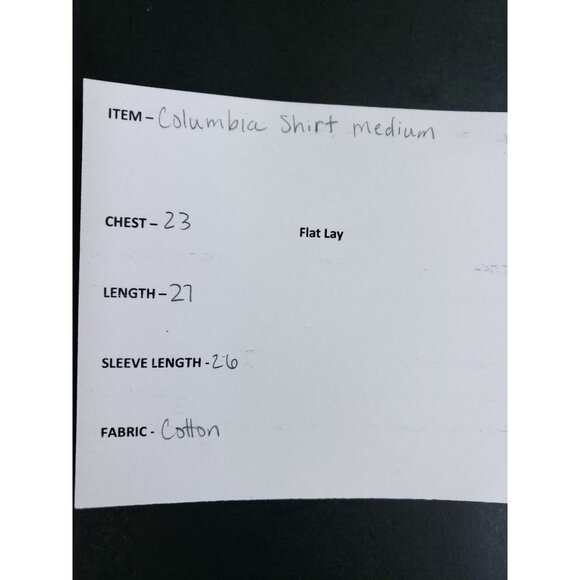 ITEM – Columbia Shirt medium
CHEST – 23
Flat Lay
LENGTH – 27
SLEEVE LENGTH - 26
FABRIC - Cotton